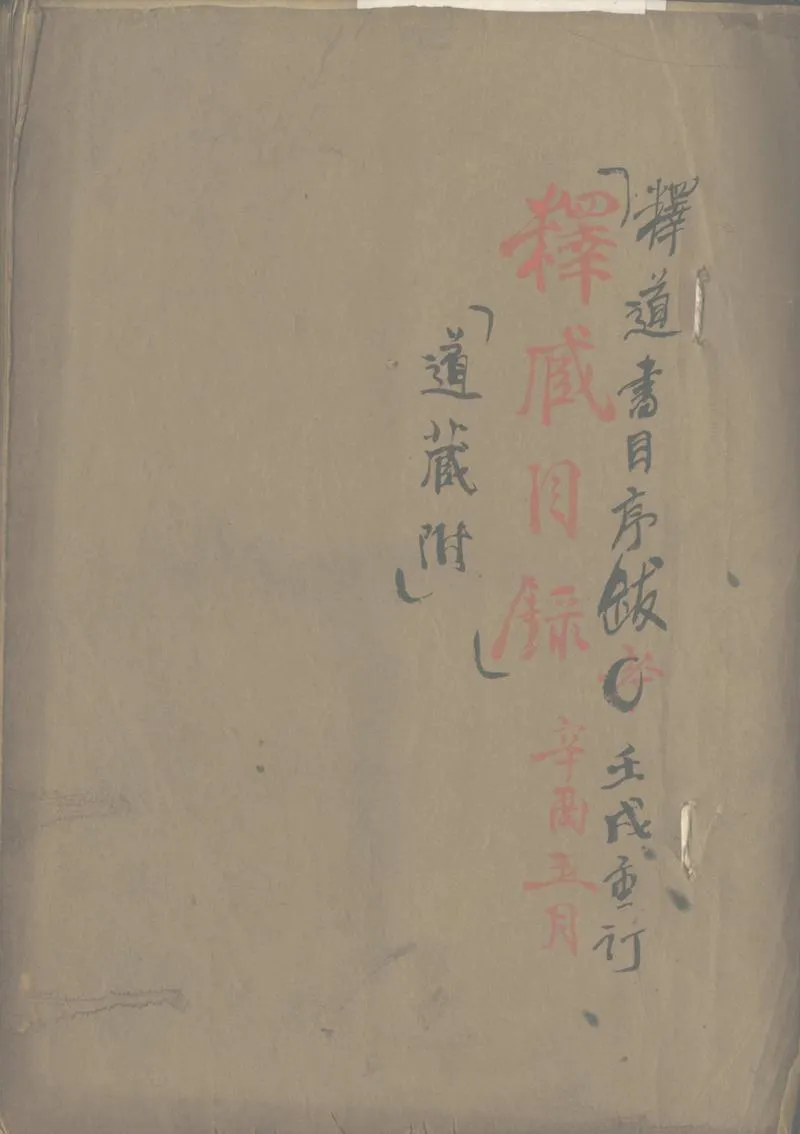 釋道書目序跋 壬戌重訂
釋藏目錄 辛酉五月
「道藏附」